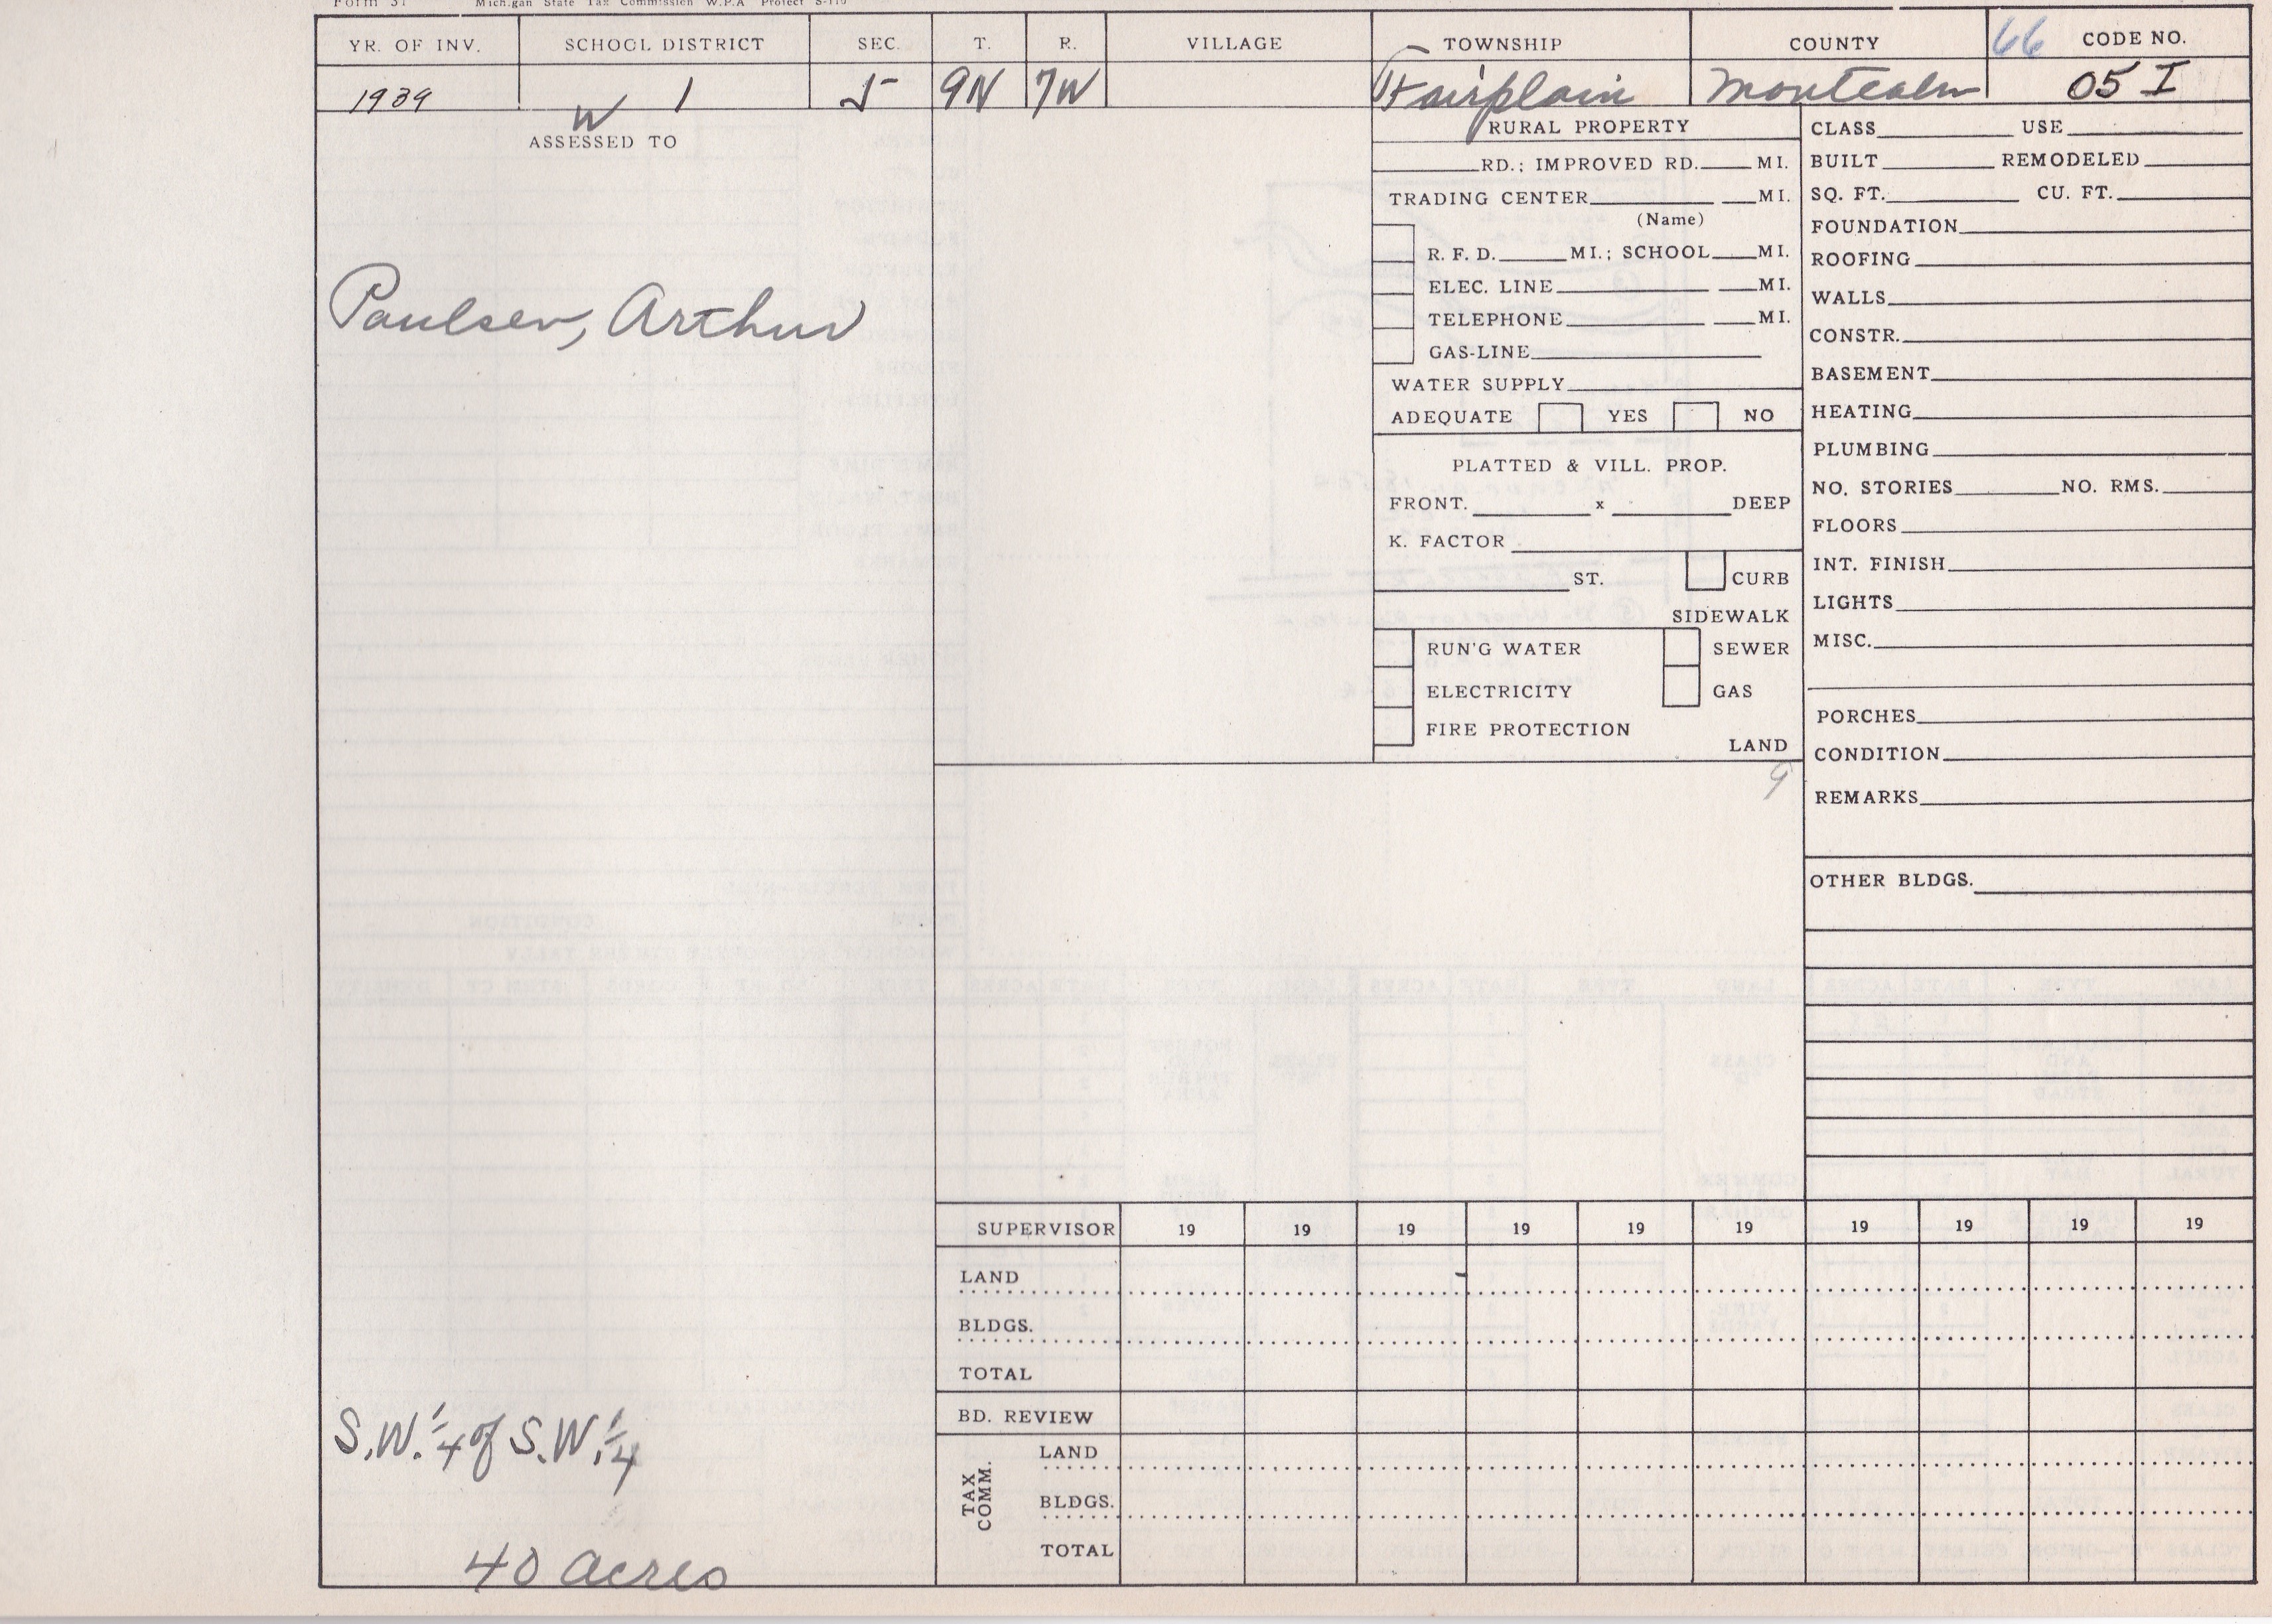 Form 31 Michigan State Tax Commission W.P.A Project S-110
YR. OF INV. SCHOOL DISTRICT SEC. T. R. VILLAGE TOWNSHIP COUNTY 66 CODE NO.
1939 W 1 5 9N 7W Fairplain Montcalm 05 I
ASSESSED TO
Paulsen, Arthur
S.W. 1/4 of S.W. 1/4
40 acres
RURAL PROPERTY
RD.; IMPROVED RD. MI.
TRADING CENTER MI.
(Name)
R. F. D. MI.; SCHOOL MI.
ELEC. LINE MI.
TELEPHONE MI.
GAS-LINE
WATER SUPPLY
ADEQUATE YES NO
PLATTED & VILL. PROP.
FRONT. x DEEP
K. FACTOR
ST. CURB
SIDEWALK
RUN'G WATER SEWER
ELECTRICITY GAS
FIRE PROTECTION
LAND
9
CLASS USE
BUILT REMODELED
SQ. FT. CU. FT.
FOUNDATION
ROOFING
WALLS
CONSTR.
BASEMENT
HEATING
PLUMBING
NO. STORIES NO. RMS.
FLOORS
INT. FINISH
LIGHTS
MISC.
PORCHES
CONDITION
REMARKS
OTHER BLDGS.
SUPERVISOR 19 19 19 19 19 19 19 19 19 19
LAND
BLDGS.
TOTAL
BD. REVIEW
TAX COMM.
LAND
BLDGS.
TOTAL